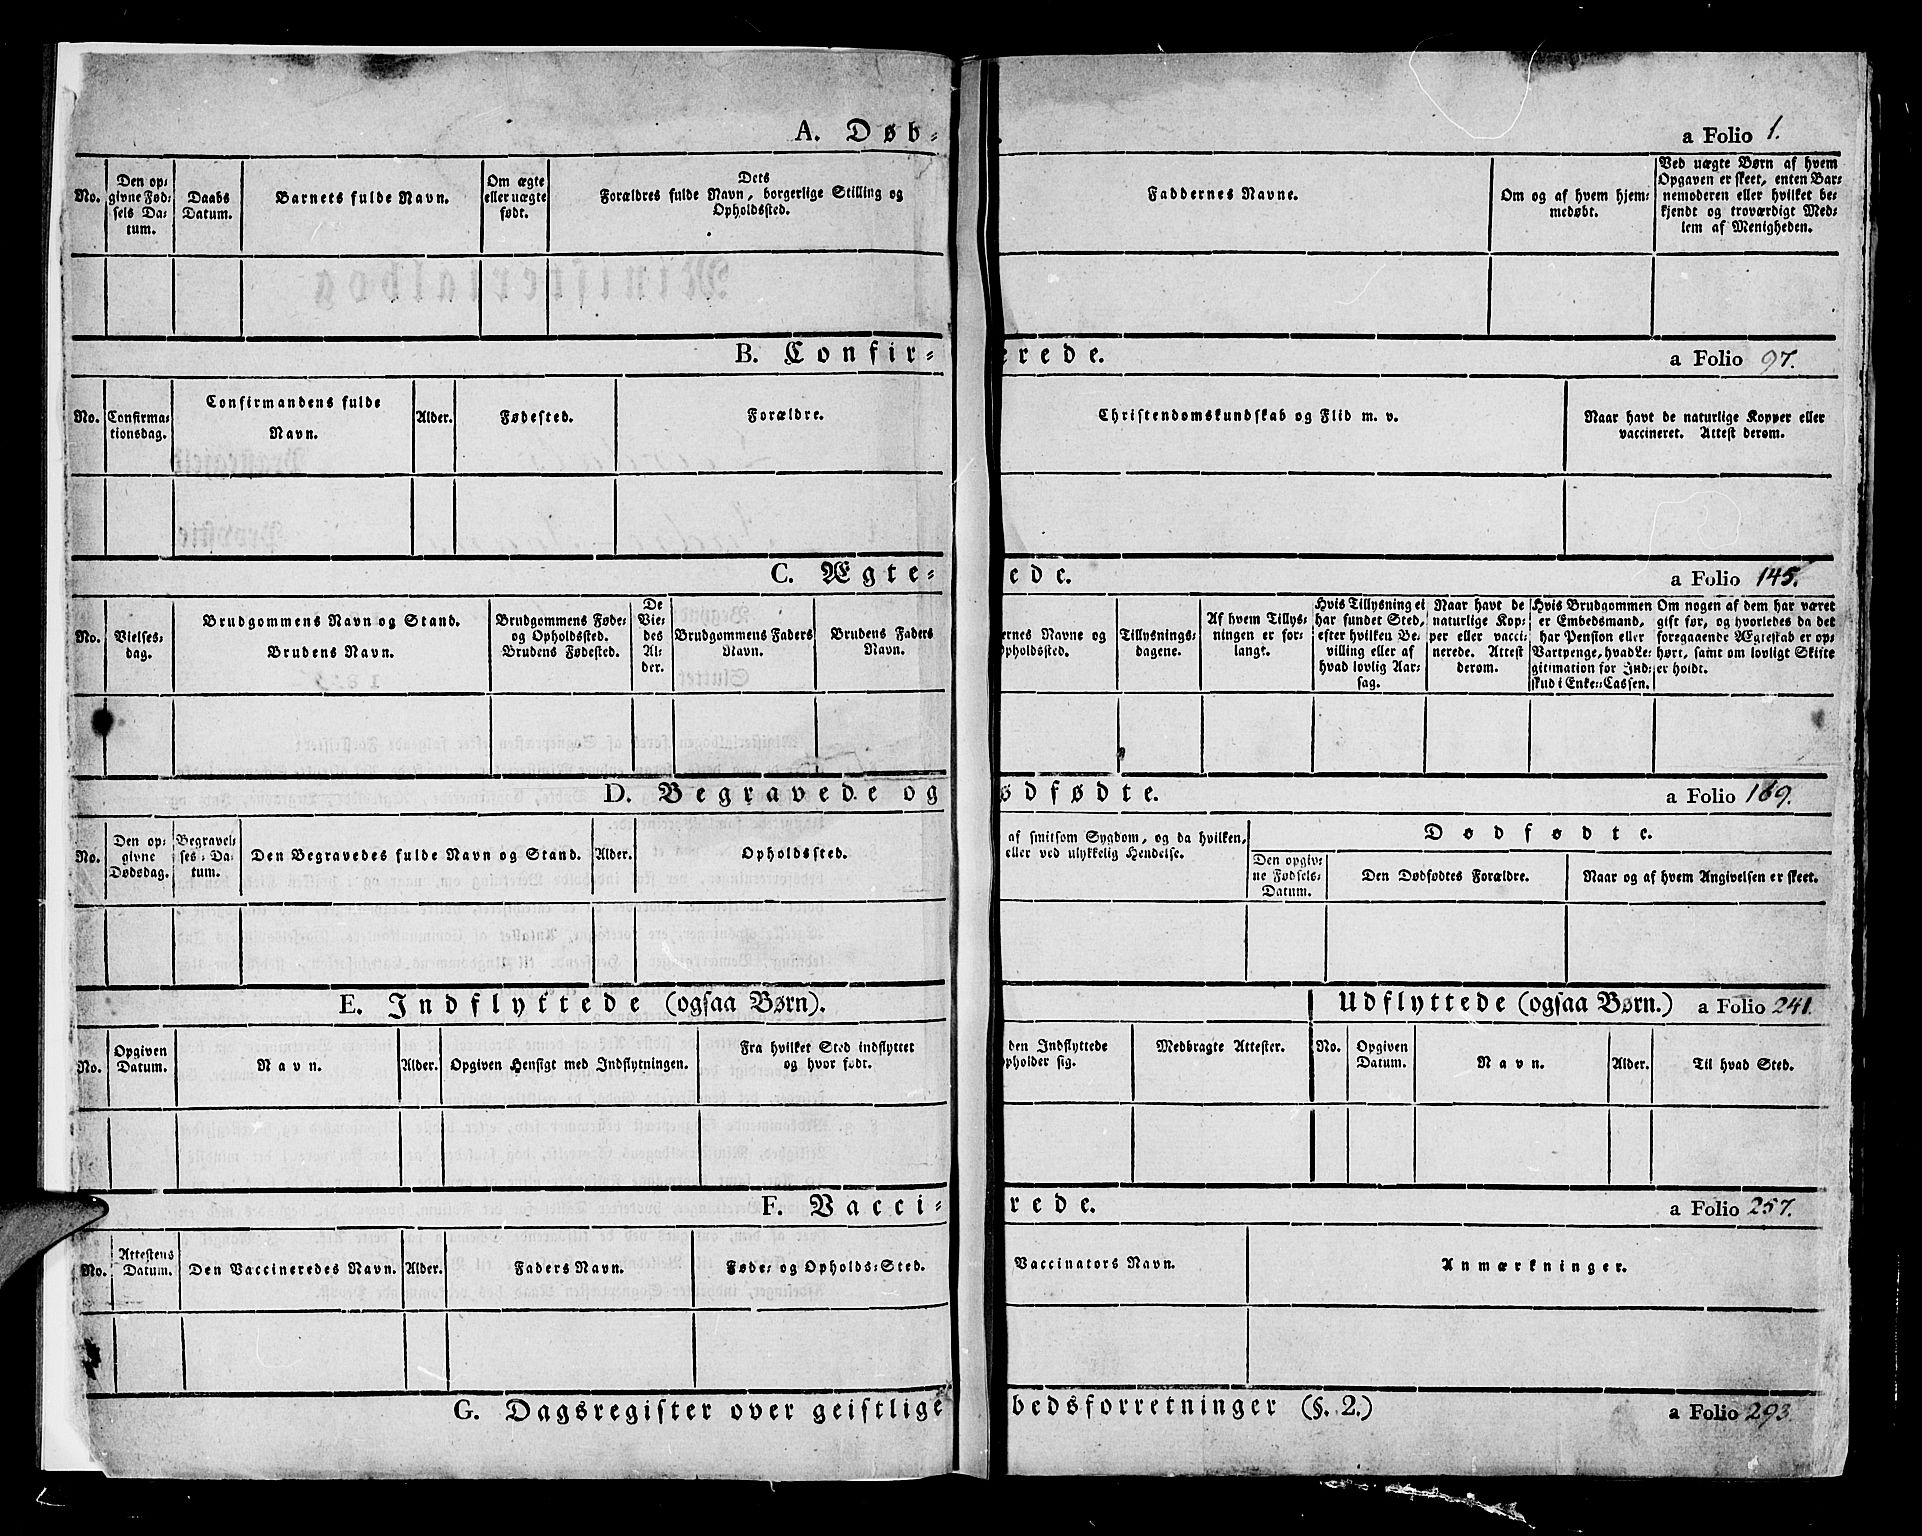 A. Døb-
a Folio 1.
No.
Den opgivne Fødsels Datum.
Daabs Datum.
Barnets fulde Navn.
Om ægte eller uægte født.
Dets
Forældres fulde Navn, borgerlige Stilling og
Opholdssted.
Faddernes Navne.
Om og af hvem hjem-
medøbt.
Ved uægte Børn af hvem
Opgaven er skeet, enten Bar-
nemoderen eller hvilket be-
kjendt og troværdigt Med-
lem af Menigheden.
B. Confir-
erede.
a Folio 97.
No.
Confirma-
tionsdag.
Confirmandens fulde
Navn.
Alder.
Fødested.
Forældre.
Christendomskundskab og Flid m. v.
Naar havt de naturlige Kopper eller
vaccineret. Attest derom.
C. Ægte-
ede.
a Folio 145.
No.
Vielses-
dag.
Brudgommens Navn og Stand.
Brudens Navn.
Brudgommens Føde-
og Opholdssted.
Brudens Fødested.
De
Vie-
des
Al-
der.
Brudgommens Faders
Navn.
Brudens Faders
Navn.
ernes Navne og
pholdssted.
Tillysnings-
dagene.
Af hvem Tillys-
ningen er for-
langt.
Hvis Tillysning ei
har fundet Sted,
efter hvilken Be-
villing eller af
hvad lovlig Aar-
sag.
Naar havt de
naturlige Kop-
per eller vacci-
nerede. Attest
derom.
Hvis Brudgommen
er Embedsmand,
har Pension eller
Vartpenge, hvad Le-
gitimation for Ind-
skud i Enke-Cassen.
Om nogen af dem har været
gift før, og hvorledes da det
foregaaende Ægteskab er op-
hørt, samt om lovligt Skifte
er holdt.
D. Begravede og
ødfødte.
a Folio 169.
No.
Den op-
givne
Dødsdag.
Begravel-
ses-Da-
tum.
Den Begravedes fulde Navn og Stand.
Alder.
Opholdssted.
af smitsom Sygdom, og da hvilken,
eller ved ulykkelig Hendelse.
Dødfødte.
Den opgiv-
ne Fødsels-
Datum.
Den Dødfødtes Forældre.
Naar og af hvem Angivelsen er skeet.
E. Indflyttede (ogsaa Børn).
Udflyttede (ogsaa Børn.)
a Folio 241.
No.
Opgiven
Datum.
Navn.
Alder.
Opgiven Hensigt med Indflytningen.
Fra hvilket Sted indflyttet
og hvor født.
den Indflyttede
pholder sig.
Medbragte Attester.
No.
Opgiven
Datum.
Navn.
Alder.
Til hvad Sted.
F. Vacci-
rede.
a Folio 257.
No.
Attestens
Datum.
Den Vaccineredes Navn.
Alder.
Faders Navn.
Føde- og Opholds-Sted.
Vaccinators Navn.
Anmærkninger.
G. Dagsregister over geistlige
bedsforretninger (§. 2.)
a Folio 293.